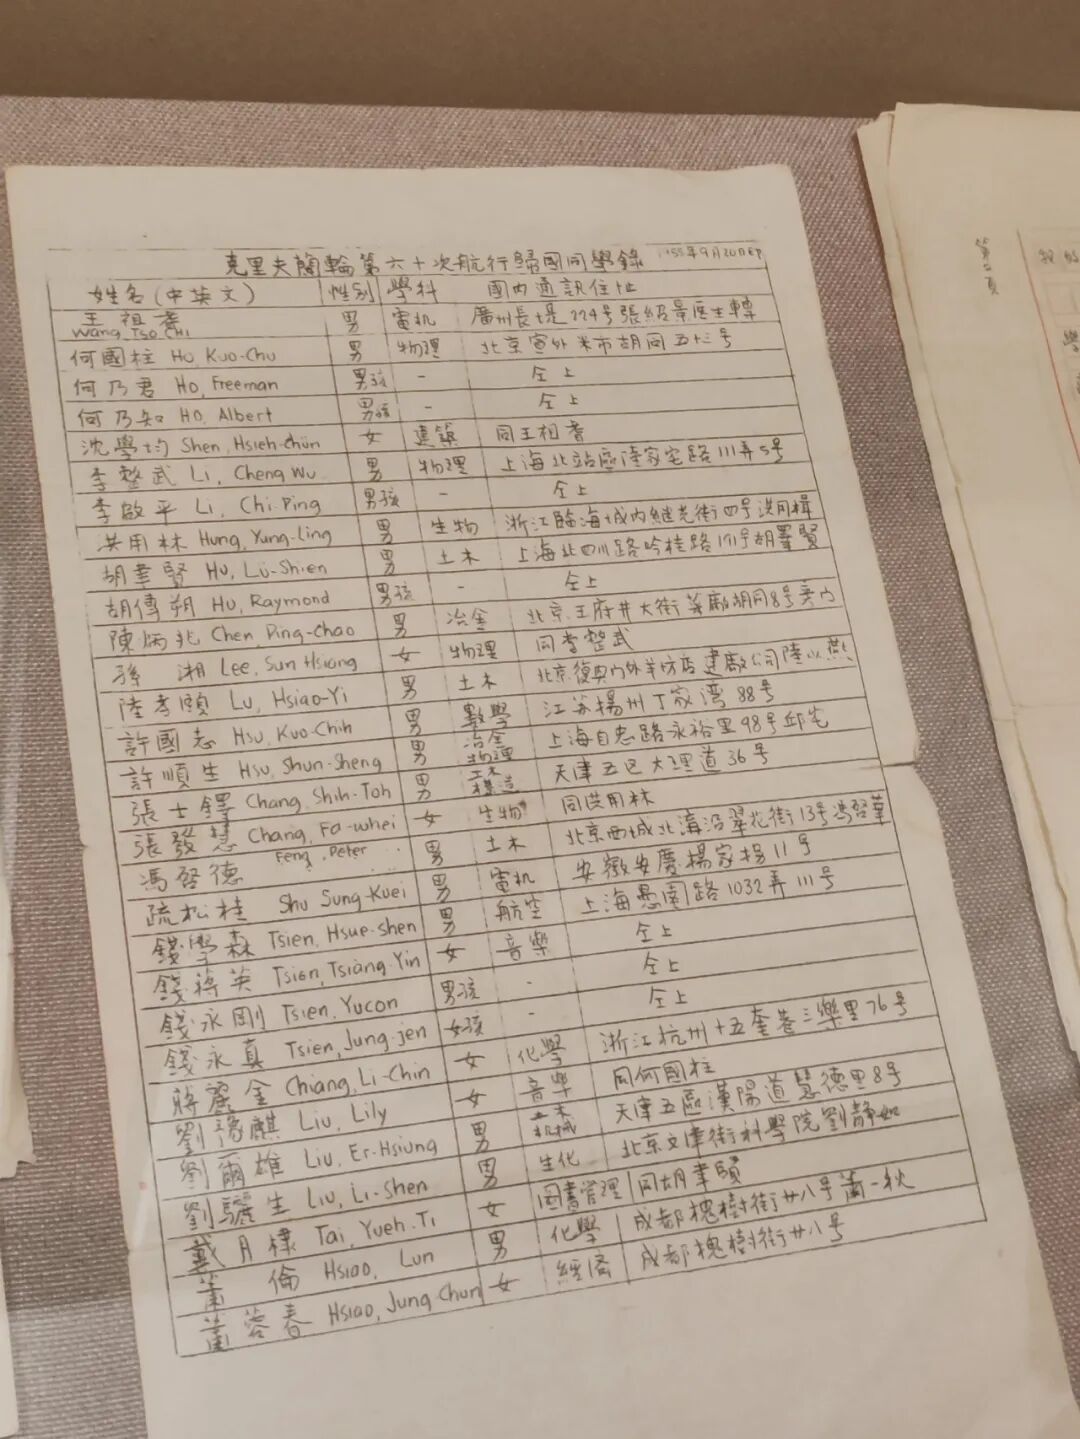 克里夫蘭輪第六十次航行歸國同學錄 1955年9月20日EP
姓名(中英文) 性别 學科 國内通訊住址
王祖耆 Wang, Tso Chi 男 電机 廣州長堤224号張紹景医生轉
何國柱 Ho, Kuo-Chu 男 物理 北京宣外米市胡同五十三号
何乃君 Ho, Freeman 男孩 - 仝上
何乃知 Ho, Albert 男孩 - 仝上
沈學均 Shen, Hsieh-chün 女 建築 同王祖耆
李整武 Li, Cheng Wu 男 物理 上海北站區陸家宅路111弄5号
李啟平 Li, Chi-Ping 男孩 - 仝上
洪用林 Hung, Yung-Ling 男 生物 浙江臨海城内継光街四号洪用楫
胡聿賢 Hu, Lü-Shien 男 土木 上海北四川路吟桂路191号胡聿賢
胡傳朔 Hu, Raymond 男孩 - 仝上
陳炳兆 Chen, Ping-Chao 男 冶金 北京王府井大街胡同8号
孫湘 Lee, Sun Hsiang 女 物理 同李整武
陸孝頤 Lu, Hsiao-Yi 男 土木 北京復興门外羊坊店建厰公司陸以燕
許國志 Hsu, Kuo-Chih 男 數學 江苏揚州丁家湾88号
許順生 Hsu, Shun-Sheng 男 冶金物理 上海自忠路永裕里98号邱宅
張士鐸 Chang, Shih-Toh 男 土木構造 天津五区大理道36号
張發慧 Chang, Fa-whei 女 生物 同洪用林
馮啓德 Feng, Peter 男 土木 北京西城北溝沿翠花街13号馮啓華
疏松桂 Shu Sung-Kuei 男 電机 安徽安慶楊家拐11号
錢學森 Tsien, Hsue-shen 男 航空 上海愚園路1032弄111号
錢蔣英 Tsien, Tsiang Yin 女 音樂 仝上
錢永剛 Tsien, Yucon 男孩 - 仝上
錢永真 Tsien, Jung-jen 女孩 - 仝上
蔣麗金 Chiang, Li-Chin 女 化學 浙江杭州十五奎巷三樂里76号
劉豫麒 Liu, Lily 女 音樂 同何國柱
劉爾雄 Liu, Er-Hsiung 男 土木机械 天津五區漢陽道慧德里8号
劉驪生 Liu, Li-Shen 男 生化 北京文津街科學院劉静如
戴月棣 Tai, Yueh-Ti 女 图書管理 同胡聿賢
蕭倫 Hsiao, Lun 男 化學 成都槐樹街廿八号蕭一秋
蕭蓉春 Hsiao, Jung Chun 女 經濟 成都槐樹街廿八号
第二頁